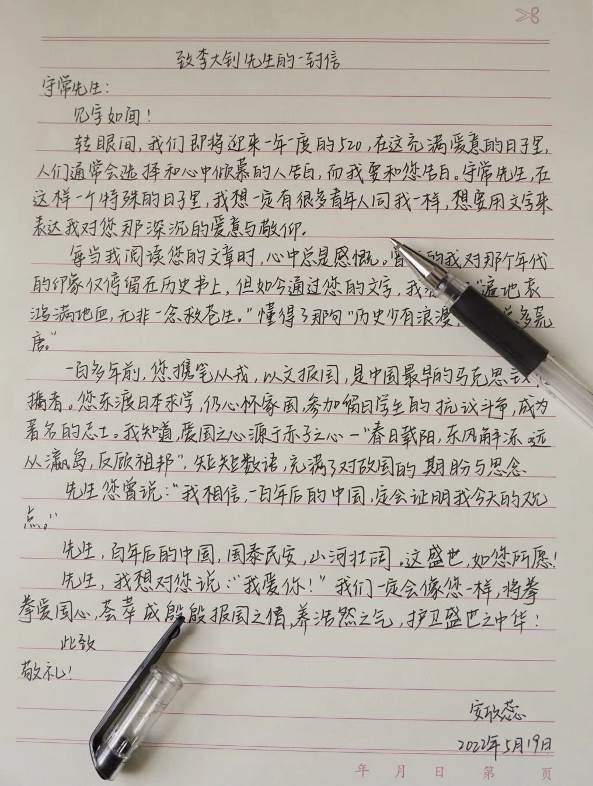 致李大钊先生的一封信
守常先生：
见字如面！
转眼间，我们即将迎来一年一度的520，在这充满爱意的日子里，
人们通常会选择和心中倾慕的人告白，而我要和您告白。守常先生，在
这样一个特殊的日子里，我想一定有很多青年人同我一样，想要用文字来
表达我对您那深沉的爱意与敬仰。
每当我阅读您的文章时，心中总是感慨。曾 的我对那个年代
的印象仅停留在历史书上，但如今通过您的文字，我 “遍地哀
鸿满地血，无非一念救苍生。”懂得了那句“历史少有浪漫， 多荒
唐。”
一百多年前，您携笔从戎，以文报国，是中国最早的马克思主
播者。您东渡日本求学，仍心怀家国，参加留日学生的抗议斗争，成为
著名的志士。我知道，爱国之心源于赤子之心—“春日载阳，东风解冻 远
从瀛岛，反顾祖邦”，短短数语，充满了对故国的期盼与思念
先生您曾说：“我相信，一百年后的中国，定会证明我今天的观
点。”
先生，百年后的中国，国泰民安，山河壮阔。这盛世，如您所愿！
先生，我想对您说：“我爱你！”我们一定会像您一样，将拳
拳爱国心，荟萃成殷殷报国之情，养浩然之气，护卫盛世之中华！
此致
敬礼！
安欣蕊
2022年5月19日
年 月 日 第 页